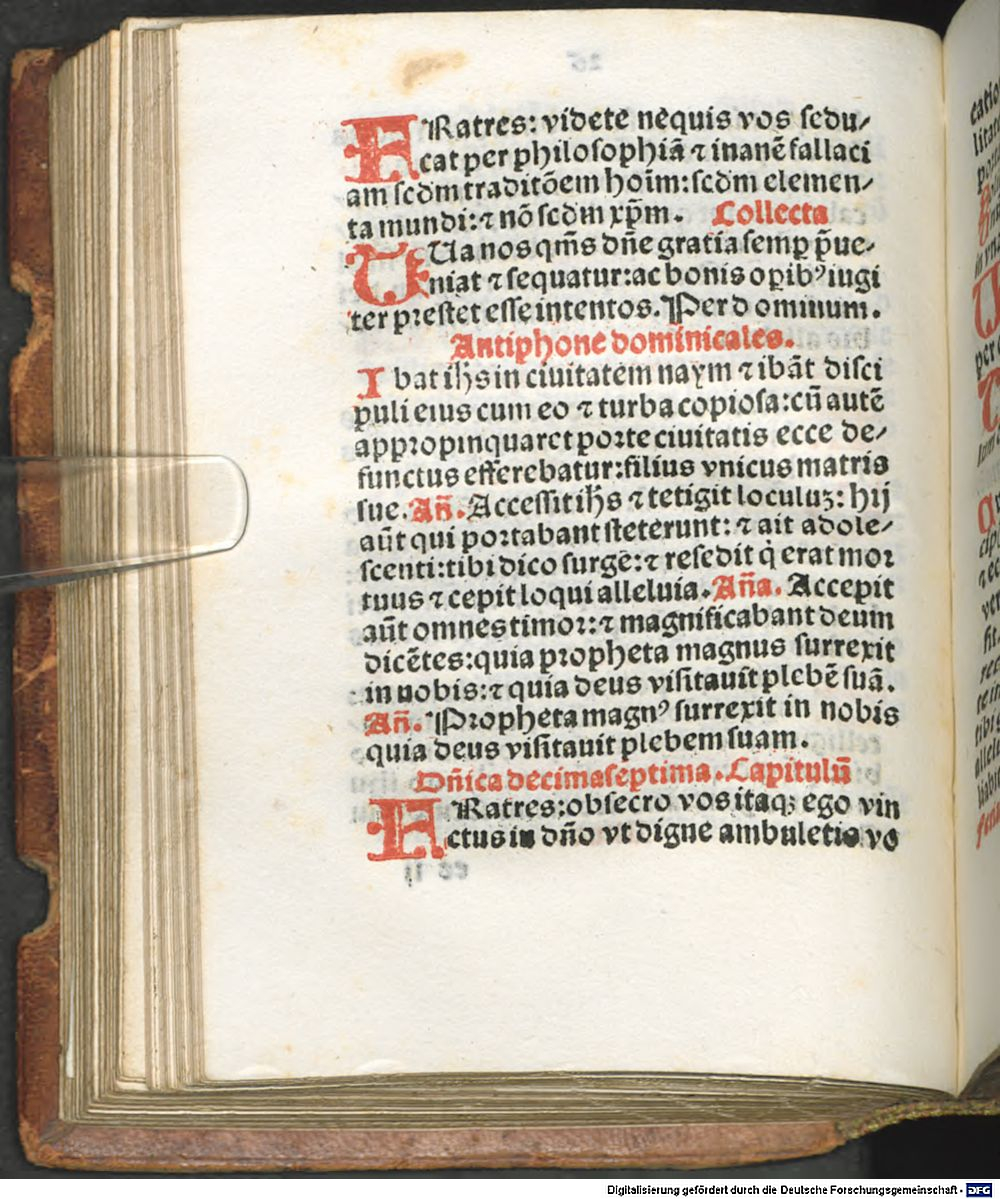 FRatres: videte nequis vos sedu/
cat per philosophiā ⁊ inanē fallaci
am scdm traditōem hoīm: scdm elemen/
ta mundi: ⁊ nō scdm xp̄m. Collecta
TUa nos qm̄s dn̄e gratia semp̲ p̄ue/
niat ⁊ sequatur: ac bonis op̲ibꝰ iugi
ter prestet esse intentos. Per dominum.
Antiphone dominicales.
Ibat ih̄s in ciuitatem naym ⁊ ibāt disci
puli eius cum eo ⁊ turba copiosa: cū autē
appropinquaret porte ciuitatis ecce de/
functus efferebatur: filius vnicus matris
sue. An̄. Accessit ih̄s ⁊ tetigit loculuꝫ: hij
aūt qui portabant steterunt: ⁊ ait adole/
scenti: tibi dico surge: ⁊ resedit q̇ erat mor
tuus ⁊ cepit loqui alleluia. An̄a. Accepit
aūt omnes timor: ⁊ magnificabant deum
dicētes: quia propheta magnus surrexit
in nobis: ⁊ quia deus visitauit plebē suā.
An̄. Propheta magnꝰ surrexit in nobis
quia deus visitauit plebem suam.
Dn̄ica decimaseptima. Capitulū
FRatres: obsecro vos itaqꝫ ego vin
ctus in dn̄o vt digne ambuletis vo
Digitalisierung gefördert durch die Deutsche Forschungsgemeinschaft - DFG